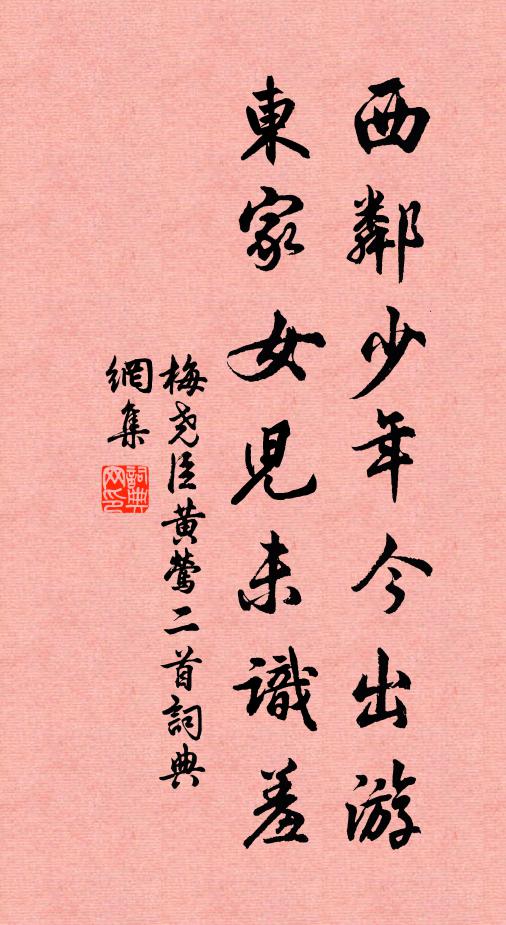 西鄰少年今出游
東家女児未識羞
梅尧臣黄鶯二首詞典
網集
詞典
网印